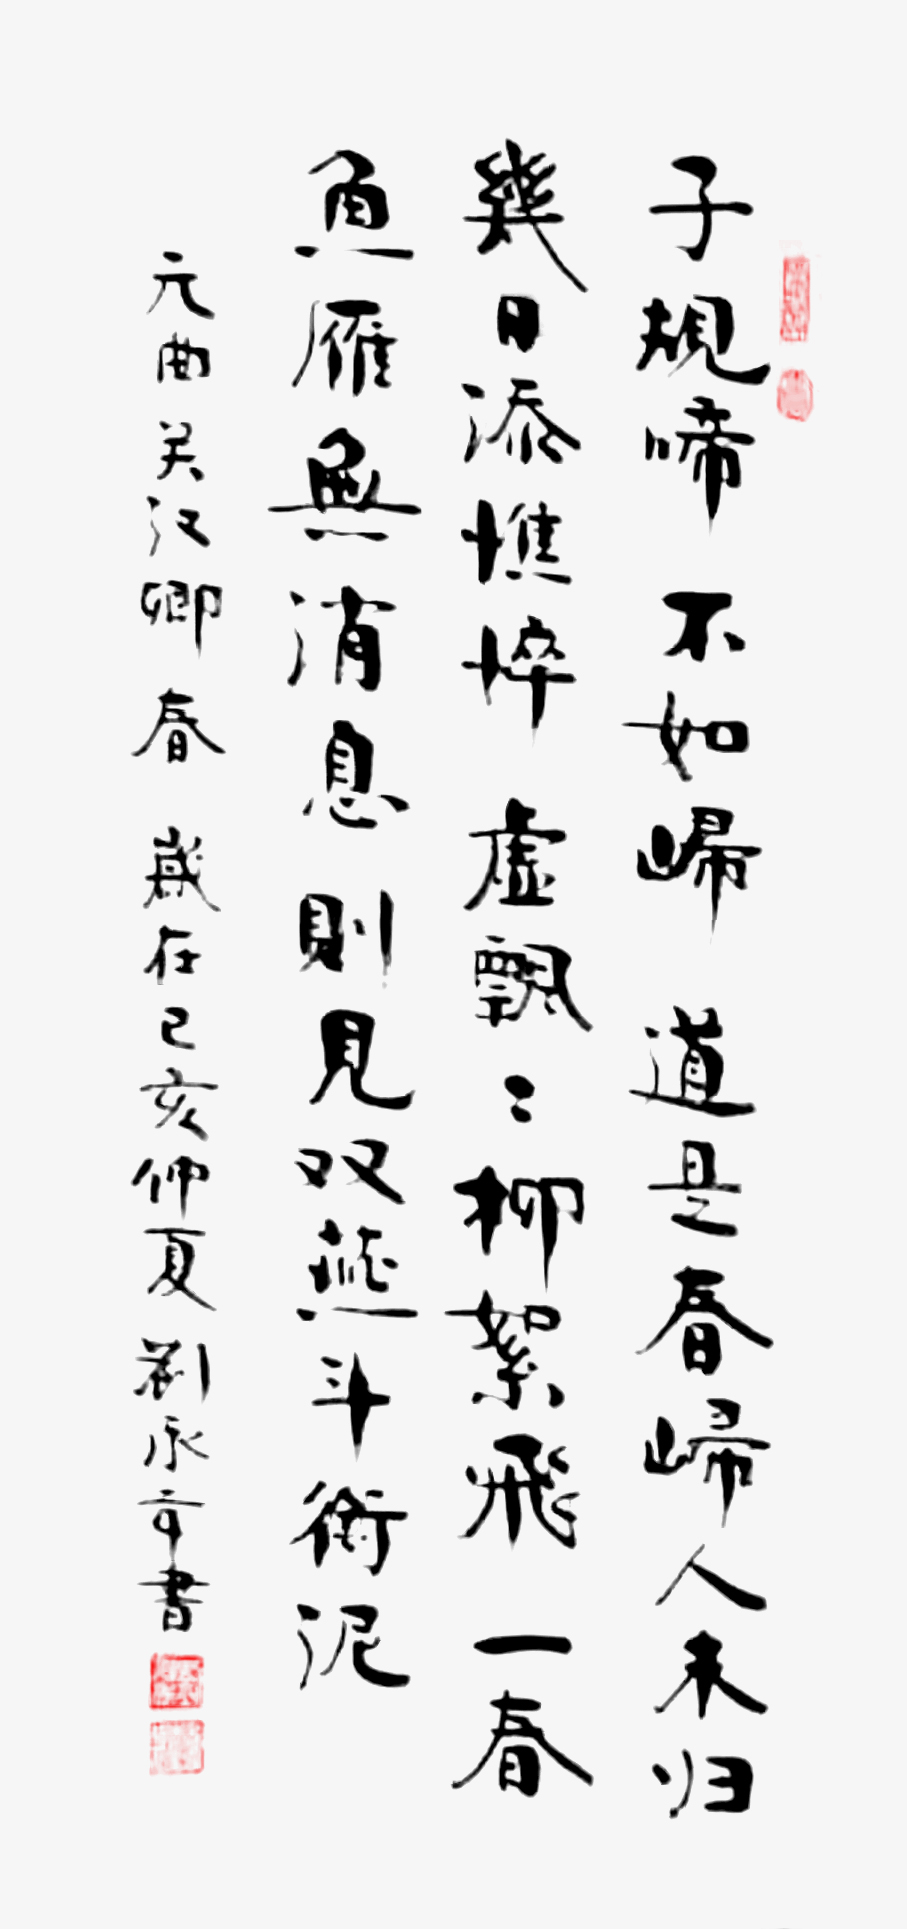 子規啼不如歸道是春歸人未归
幾日添憔悴虛飄〻柳絮飛一春
魚雁無消息則見双燕斗銜泥
元曲关汉卿春歲在己亥仲夏劉永奇書